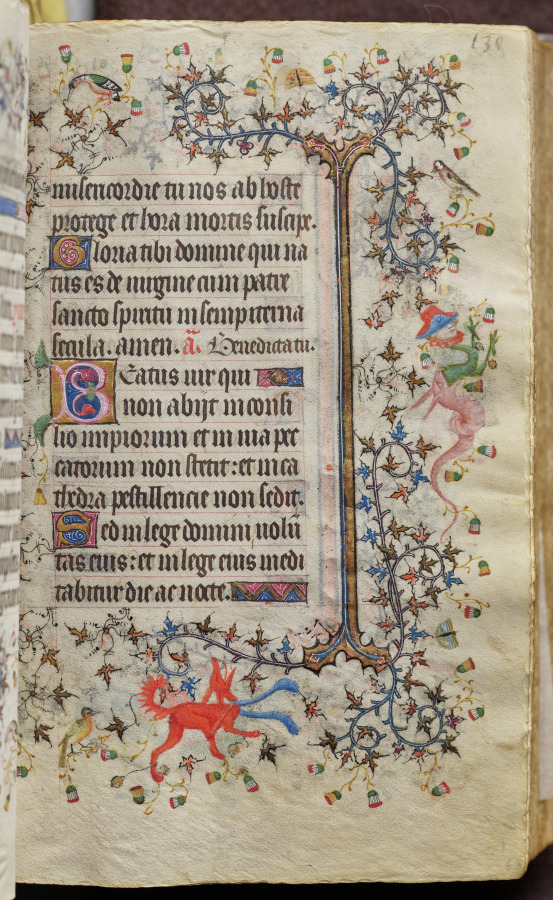 138
misericordie tu nos ab hoste
protege et hora mortis suscipe.
Gloria tibi domine qui na
tus es de uirgine cum patre
sancto spiritu in sempiterna
secula. amen. a̅. Benedicta tu.
Beatus uir qui
non abijt in consi
lio impiorum et in uia pec
catorum non stetit: et in ca
thedra pestillencie non sedit.
Sed in lege domini uolu̅
tas eius: et in lege eius medi
tabitur die ac nocte.